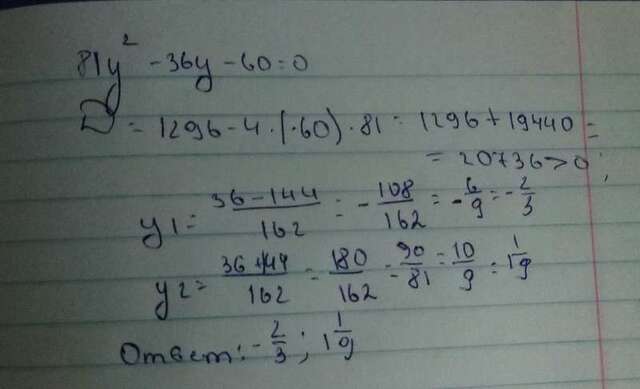 81y² - 36y - 60 = 0
D = 1296 - 4 · (-60) · 81 = 1296 + 19440 =
= 20736 > 0;
y1 = 36-144/162 = -108/162 = -6/9 = -2/3
y2 = 36+144/162 = 180/162 = 90/81 = 10/9 = 1 1/9
Ответ: -2/3; 1 1/9